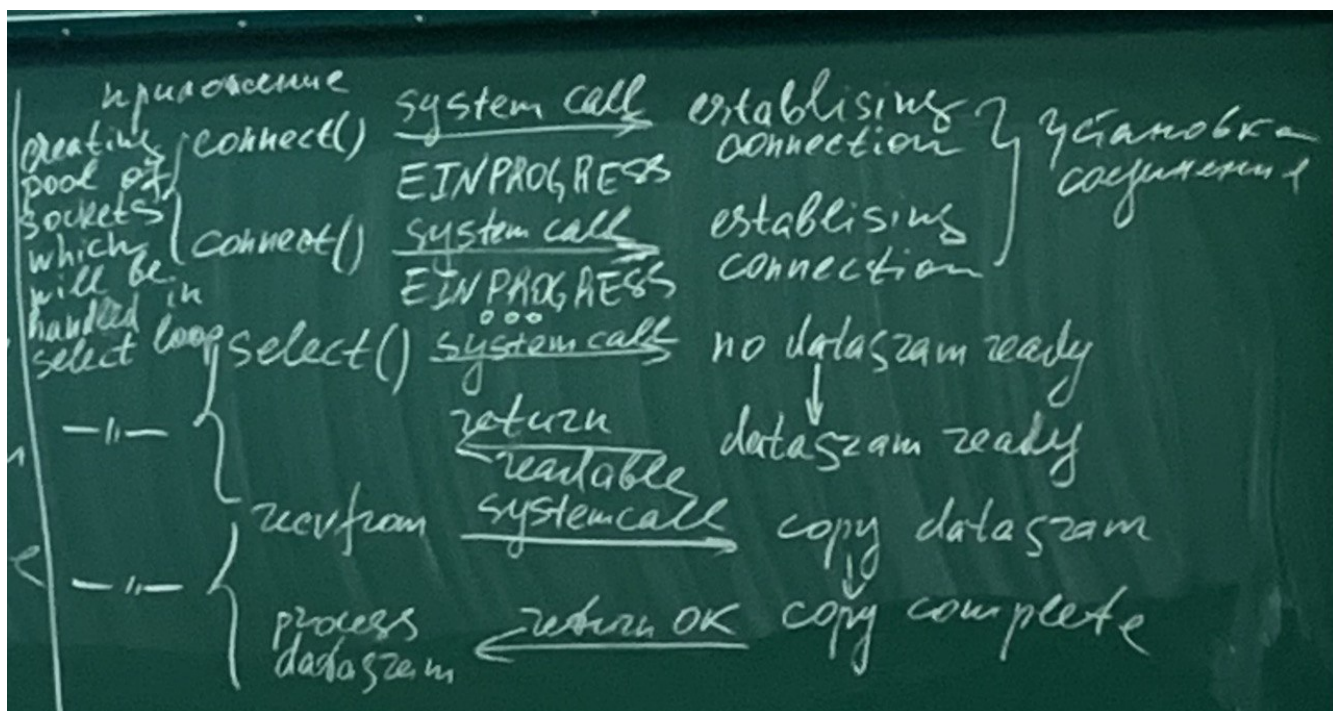 приложение
creating
pool of
sockets
which
will be
handled in
select loop
connect() system call establising
connection
EINPROGRESS
connect() system call establising
connection
EINPROGRESS
установка
соединения
select() system call no datagram ready
—〃— return datagram ready
readable
recvfrom system call copy datagram
—〃—
process
datagram return OK copy complete